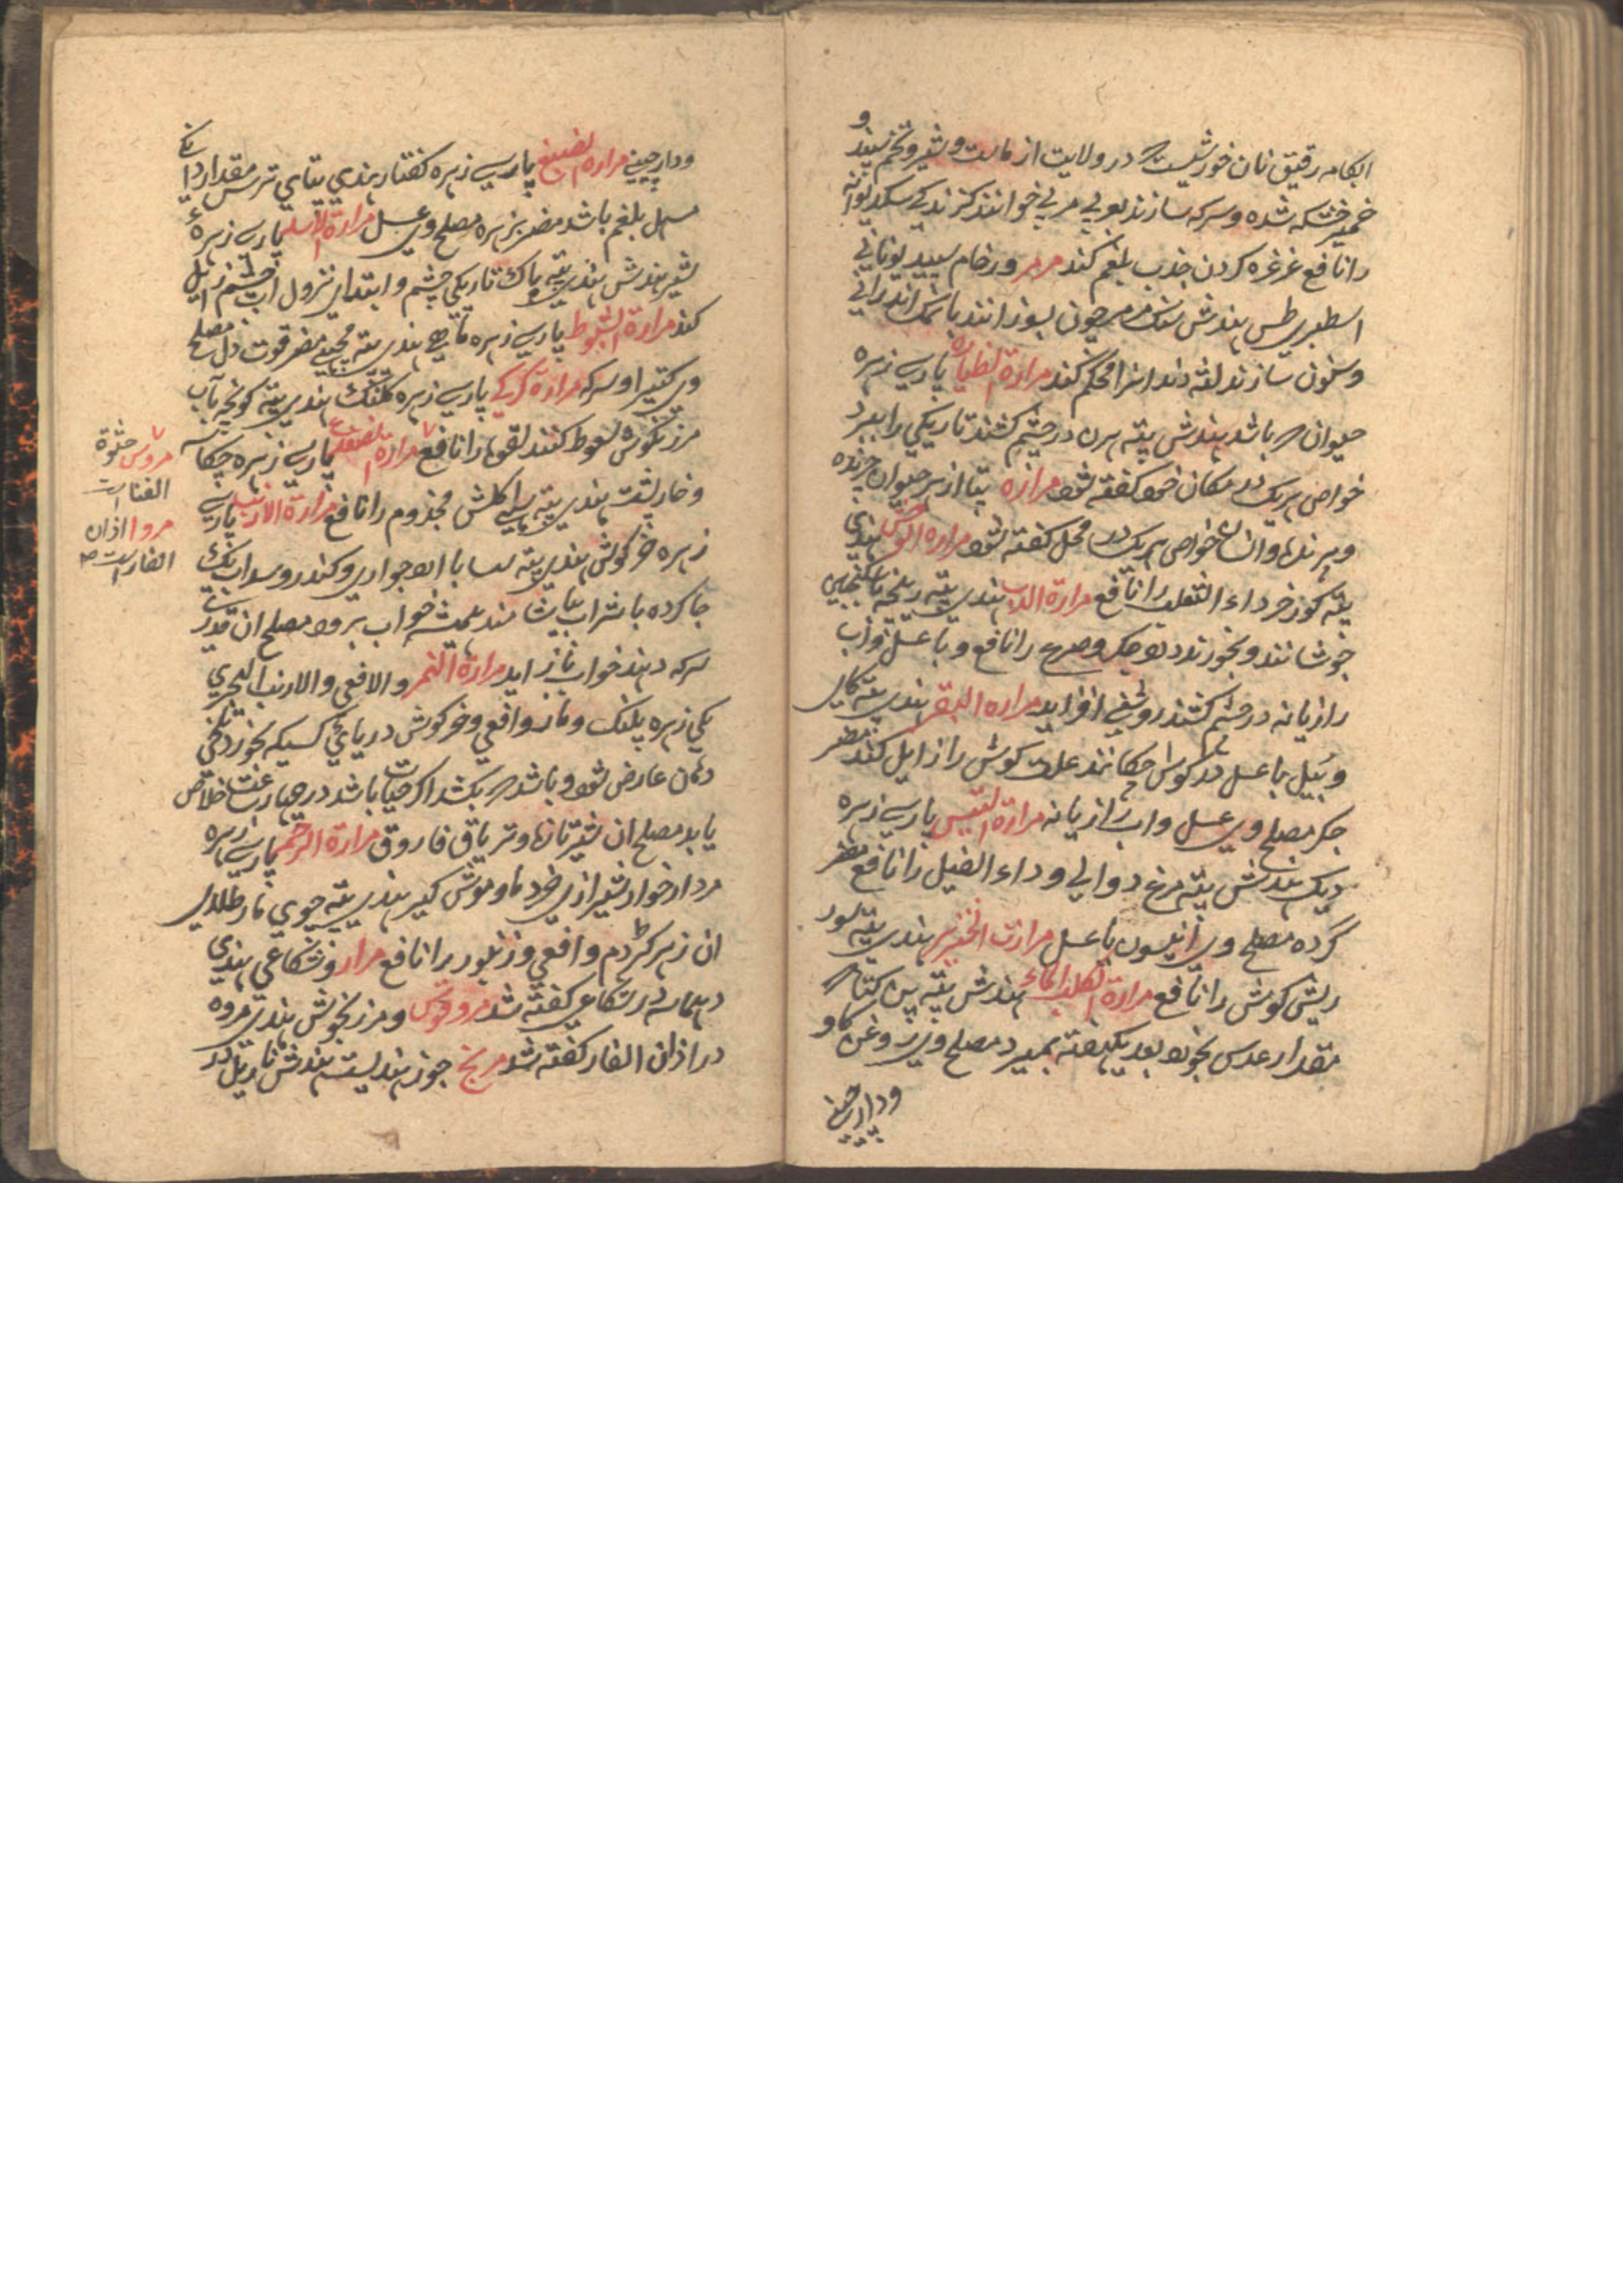 ابکامه رقیق نان خورشیست که در ولایت از ماست و شیر و تخم سپند و
خمیر خشکه شده و سرکه سازند بعربی مربی خوانند گزندگی سگ دیوانه
را نافع غرغره کردن جذب بلغم کند مرمر و رخام سپید یونانی
اسطبری طس هندش سنک مرمر چون بسوزانند با نمک اندرانی
و سنون سازند لثه دندانرا محکم کند مرارة الظبا پارسی زهره
حیوان که باشد هندش پته هرن در چشم کشند تاریکی را ببرد
خواص هریک در مکان خود گفته شود مراره پتا از هر حیوان چرنده
و پرنده و انسان خواص هر یک در محل گفته شود مراره الوحش هندی
پته کورخر داء الثعلب را نافع مرارة الدب هندی پته ریچه با سکنجبین
جوشانند و بخورند درد جگر و صرع را نافع و با عسل و آب
رازیانه در چشم کشند روشنی افزاید مراره البقر هندی پته گای
و بیل با عسل در گوش چکانند علت گوش را زایل کند مضر
جگر مصلح وی عسل و اب رازیانه مرارة التیس پارسی زهره
دیک هندش پته مرغ دوالی و داء الفیل را نافع مضر
گرده مصلح وی انیسون با عسل مرارت الخنزیر هندی پته سور
ریش گوش را نافع مرارة الکلب الماء هندش پته پن کتا که
مقدار عدس بخورد بعد یکهفته بمیرد مصلح وی روغن گاو
ودارچینی
ودارچینی مراره الضبع پارسی زهره کفتار هندی پتای ترس مقدار دانکی
مسهل بلغم باشد مضر بزهره مصلح وی عسل مرارة الاسد پارسی زهرهٔ
شیر هندش هندی پته باک تاریکی چشم و ابتدای نزول آب چشم زایل
کند مرارة الشبوط پارسی زهره ماهی هندی پته مچهی مضر قوت دل مصلح
وی کتیرا و سرکه مراره کرکی پارسی زهره کلنک هندی پته کونجه بآب
مرزنکوش سعوط کنند لقوه را نافع مراره القنفذ پارسی زهره چکاسه
و خارپشت هندی پته ساهی کلش مجذوم را نافع مرارة الارنب پارسی
زهره خرگوش هندی پته سسا با الو جواری و کندر و سداب یک
جا کرده با شراب بیاشامند همیشه خواب برود مصلح ان قدری
سرکه دهند خواب باز اید مرارة النمر و الافعی و الارنب البحری
یکی زهره پلنک و مار و افعی و خرگوش دریائی کسیکه بخورد تلخی
دهان عارض شود و باشد که بکشد اکر حیات باشد در چهار ساعت خلاص
یابد مصلح ان شیر تازه و تریاق فاروق مرارة الرخم پارسی زهره
مردارخوار شیرازی خردما و موش کیر هندی پته چوی مار طلای
ان زهر کژدم و افعی و زنبور را نافع مرار و شکاعی هندی
دهماسه در شکاعی گفته شد مروقوس و مرزنجوش هندی مروه
در اذان الفار کفته شد مرنج جوز هندیست هندش ناریل در
مروس حثوة
الفنا است
مروا اذان
الفار است